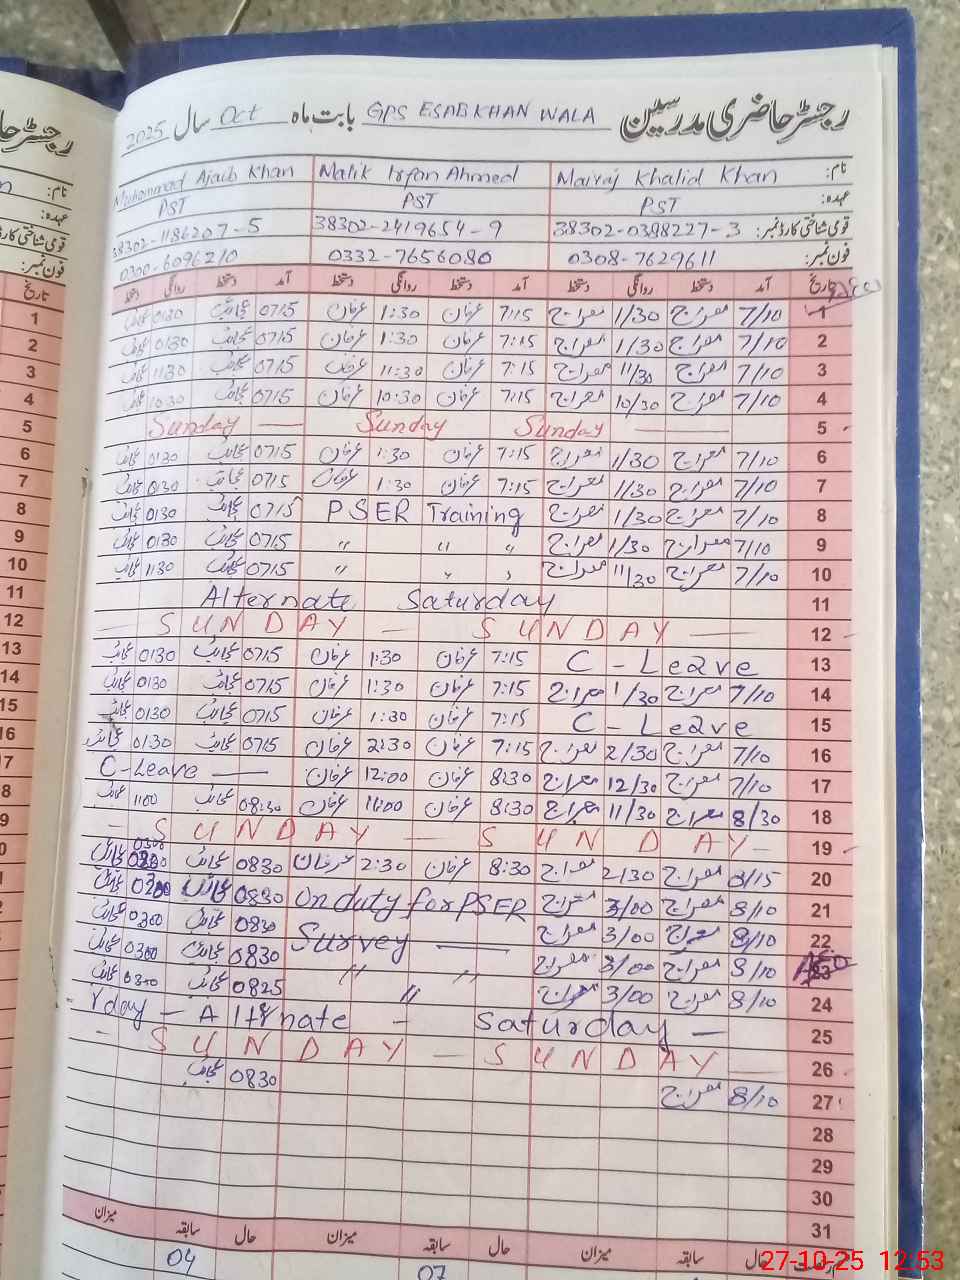 رجسٹر حاضری مدرسین GPS ESABKHAN WALA بابت ماہ Oct سال 2025
نام: Mairaj Khalid Khan Malik Irfan Ahmed Muhammad Ajaib Khan
عہدہ: PST PST PST
قومی شناختی کارڈ نمبر: 38302-0398227-3 38302-2419654-9 38302-1186207-5
فون نمبر: 0308-7629611 0332-7656080 0300-6096210
تاریخ آمد دستخط روانگی دستخط آمد دستخط روانگی دستخط آمد دستخط روانگی دستخط
1 7/10 معراج 1/30 معراج 7:15 عرفان 1:30 عرفان 0715 عجائب 0130 عجائب
2 7/10 معراج 1/30 معراج 7:15 عرفان 1:30 عرفان 0715 عجائب 0130 عجائب
3 7/10 معراج 11/30 معراج 7:15 عرفان 11:30 عرفان 0715 عجائب 1130 عجائب
4 7/10 معراج 10/30 معراج 7:15 عرفان 10:30 عرفان 0715 عجائب 1030 عجائب
5 Sunday Sunday Sunday
6 7/10 معراج 1/30 معراج 7:15 عرفان 1:30 عرفان 0715 عجائب 0130 عجائب
7 7/10 معراج 1/30 معراج 7:15 عرفان 1:30 عرفان 0715 عجائب 0130 عجائب
8 7/10 معراج 1/30 معراج PSER Training 0715 عجائب 0130 عجائب
9 7/10 معراج 1/30 معراج " " " 0715 عجائب 0130 عجائب
10 7/10 معراج 11/30 معراج " " " 0715 عجائب 1130 عجائب
11 Alternate Saturday
12 SUNDAY — SUNDAY
13 C-Leave 7:15 عرفان 1:30 عرفان 0715 عجائب 0130 عجائب
14 7/10 معراج 1/30 معراج 7:15 عرفان 1:30 عرفان 0715 عجائب 0130 عجائب
15 C-Leave 7:15 عرفان 1:30 عرفان 0715 عجائب 0130 عجائب
16 7/10 معراج 2/30 معراج 7:15 عرفان 2:30 عرفان 0715 عجائب 0130 عجائب
17 7/10 معراج 12/30 معراج 8:30 عرفان 12:00 عرفان C-Leave
18 8/30 معراج 11/30 معراج 8:30 عرفان 11:00 عرفان 08:30 عجائب 1100 عجائب
19 SUNDAY — SUNDAY
20 8/15 معراج 2/30 معراج 8:30 عرفان 2:30 عرفان 0830 عجائب 0300 عجائب
21 8/10 معراج 3/00 معراج On duty for PSER 0830 عجائب 0300 عجائب
22 8/10 معراج 3/00 معراج Survey 0830 عجائب 0300 عجائب
23 8/10 معراج 3/00 معراج " " 0830 عجائب 0300 عجائب
24 8/10 معراج 3/00 معراج " 0825 عجائب 0300 عجائب
25 rday - Alternate - Saturday -
26 SUNDAY — SUNDAY
27 8/10 معراج 0830 عجائب
28
29
30
31
حال سابقہ میزان حال سابقہ میزان حال سابقہ میزان
07 04
27-10-25 12:53